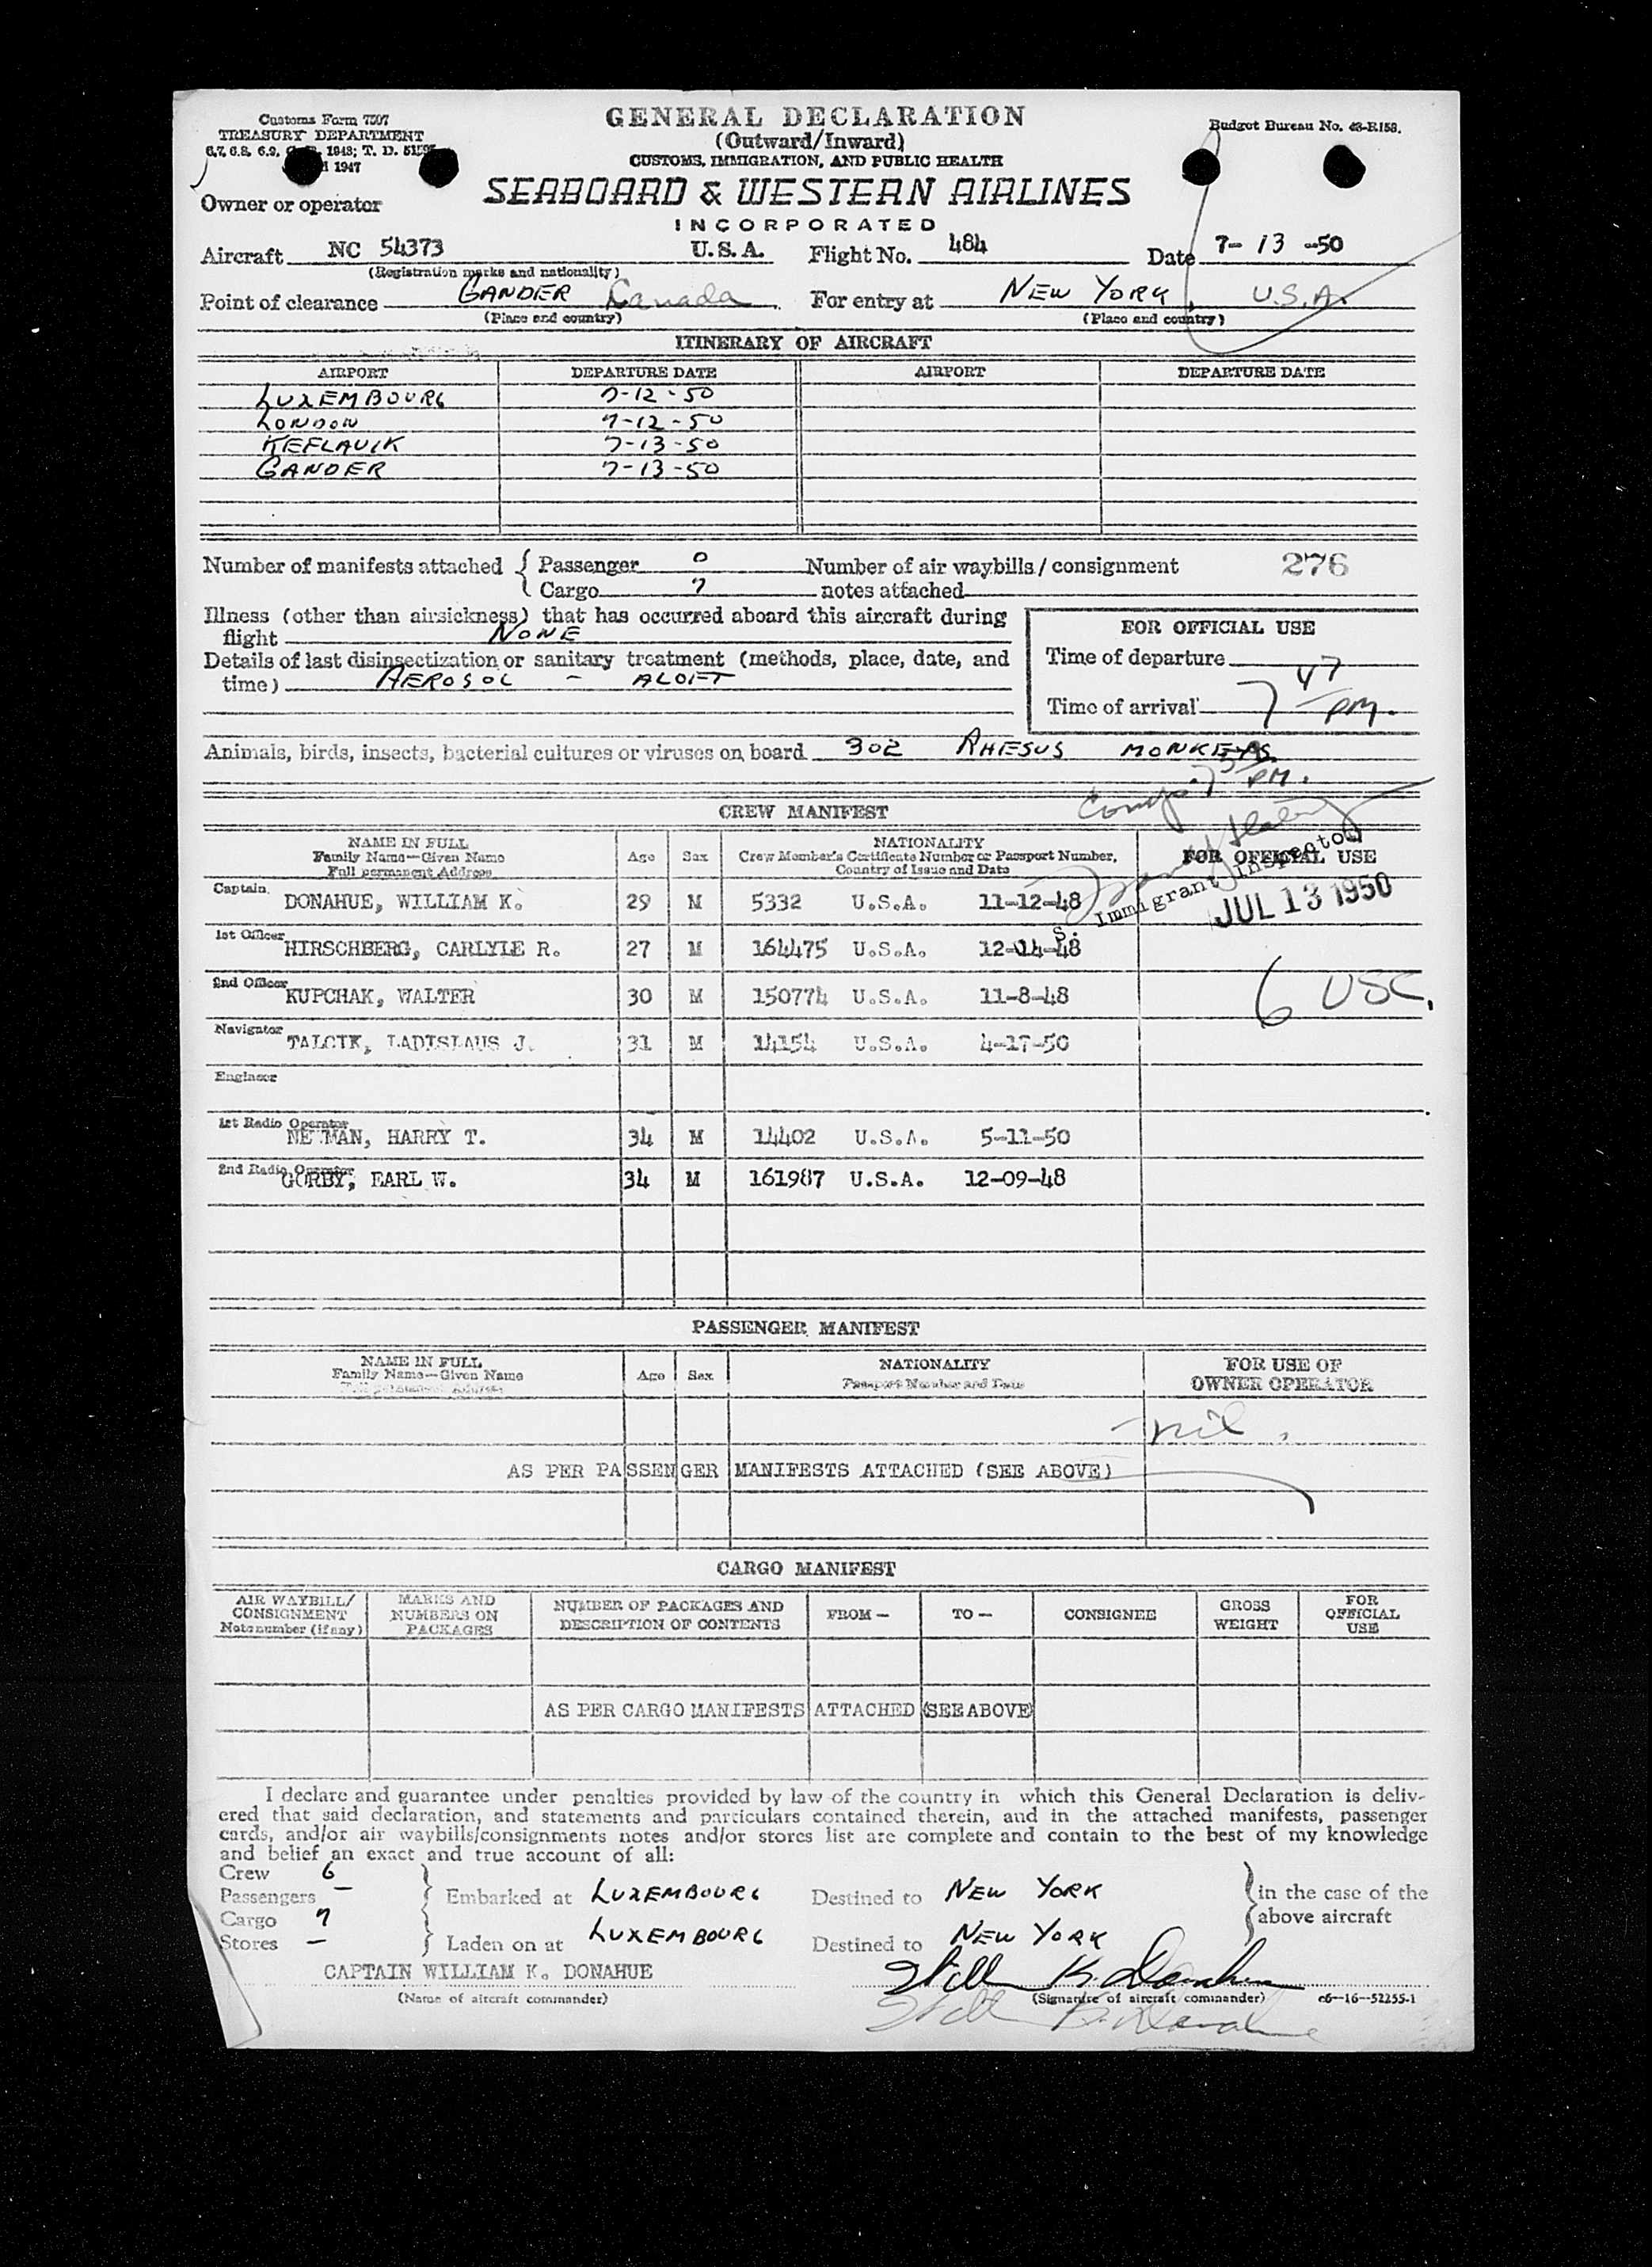 Customs Form 7507
TREASURY DEPARTMENT
1947
GENERAL DECLARATION
(Outward/Inward)
CUSTOMS, IMMIGRATION, AND PUBLIC HEALTH
Budget Bureau No. 43-R158.
SEABOARD & WESTERN AIRLINES
INCORPORATED
Owner or operator
Aircraft NC 54373 U.S.A. Flight No. 484 Date 7- 13 -50
(Registration marks and nationality)
Point of clearance GANDER Canada For entry at NEW YORK, U.S.A.
(Place and country) (Place and country)
ITINERARY OF AIRCRAFT
AIRPORT DEPARTURE DATE AIRPORT DEPARTURE DATE
LUXEMBOURG 7-12-50
LONDON 7-12-50
KEFLAVIK 7-13-50
GANDER 7-13-50
Number of manifests attached { Passenger 0 Number of air waybills/consignment 276
Cargo 7 notes attached
Illness (other than airsickness) that has occurred aboard this aircraft during
flight NONE
Details of last disinsectization or sanitary treatment (methods, place, date, and
time) AEROSOL - ALOFT
FOR OFFICIAL USE
Time of departure
Time of arrival 7 47 PM.
Animals, birds, insects, bacterial cultures or viruses on board 302 RHESUS MONKEYS.
PM.
CREW MANIFEST
NAME IN FULL
Family Name—Given Name
Full permanent Address
Age Sex
NATIONALITY
Crew Member's Certificate Number or Passport Number,
Country of Issue and Date
FOR OFFICIAL USE
Immigrant Inspector
JUL 13 1950
Captain DONAHUE, WILLIAM K. 29 M 5332 U.S.A. 11-12-48
1st Officer HIRSCHBERG, CARLYLE R. 27 M 164475 U.S.A. 12-14-48
2nd Officer KUPCHAK, WALTER 30 M 150774 U.S.A. 11-8-48 6 USC.
Navigator TALCIK, LADISLAUS J. 31 M 14154 U.S.A. 4-17-50
Engineer
1st Radio Operator NEWMAN, HARRY T. 34 M 14402 U.S.A. 5-11-50
2nd Radio Operator GORBY, EARL W. 34 M 161987 U.S.A. 12-09-48
PASSENGER MANIFEST
NAME IN FULL
Family Name—Given Name
Full permanent Address
Age Sex
NATIONALITY
Passport Number and Date
FOR USE OF
OWNER OPERATOR
nil.
AS PER PASSENGER MANIFESTS ATTACHED (SEE ABOVE)
CARGO MANIFEST
AIR WAYBILL/
CONSIGNMENT
Note number (if any)
MARKS AND
NUMBERS ON
PACKAGES
NUMBER OF PACKAGES AND
DESCRIPTION OF CONTENTS
FROM— TO— CONSIGNEE
GROSS
WEIGHT
FOR
OFFICIAL
USE
AS PER CARGO MANIFESTS ATTACHED (SEE ABOVE)
I declare and guarantee under penalties provided by law of the country in which this General Declaration is deliv-
ered that said declaration, and statements and particulars contained therein, and in the attached manifests, passenger
cards, and/or air waybills/consignments notes and/or stores list are complete and contain to the best of my knowledge
and belief an exact and true account of all:
Crew 6
Passengers — } Embarked at LUXEMBOURG Destined to NEW YORK } in the case of the
Cargo 7 above aircraft
Stores — } Laden on at LUXEMBOURG Destined to NEW YORK
CAPTAIN WILLIAM K. DONAHUE
(Name of aircraft commander)
Willm K. Donahue
(Signature of aircraft commander) c6—16—52255-1
Willm K. Donahue